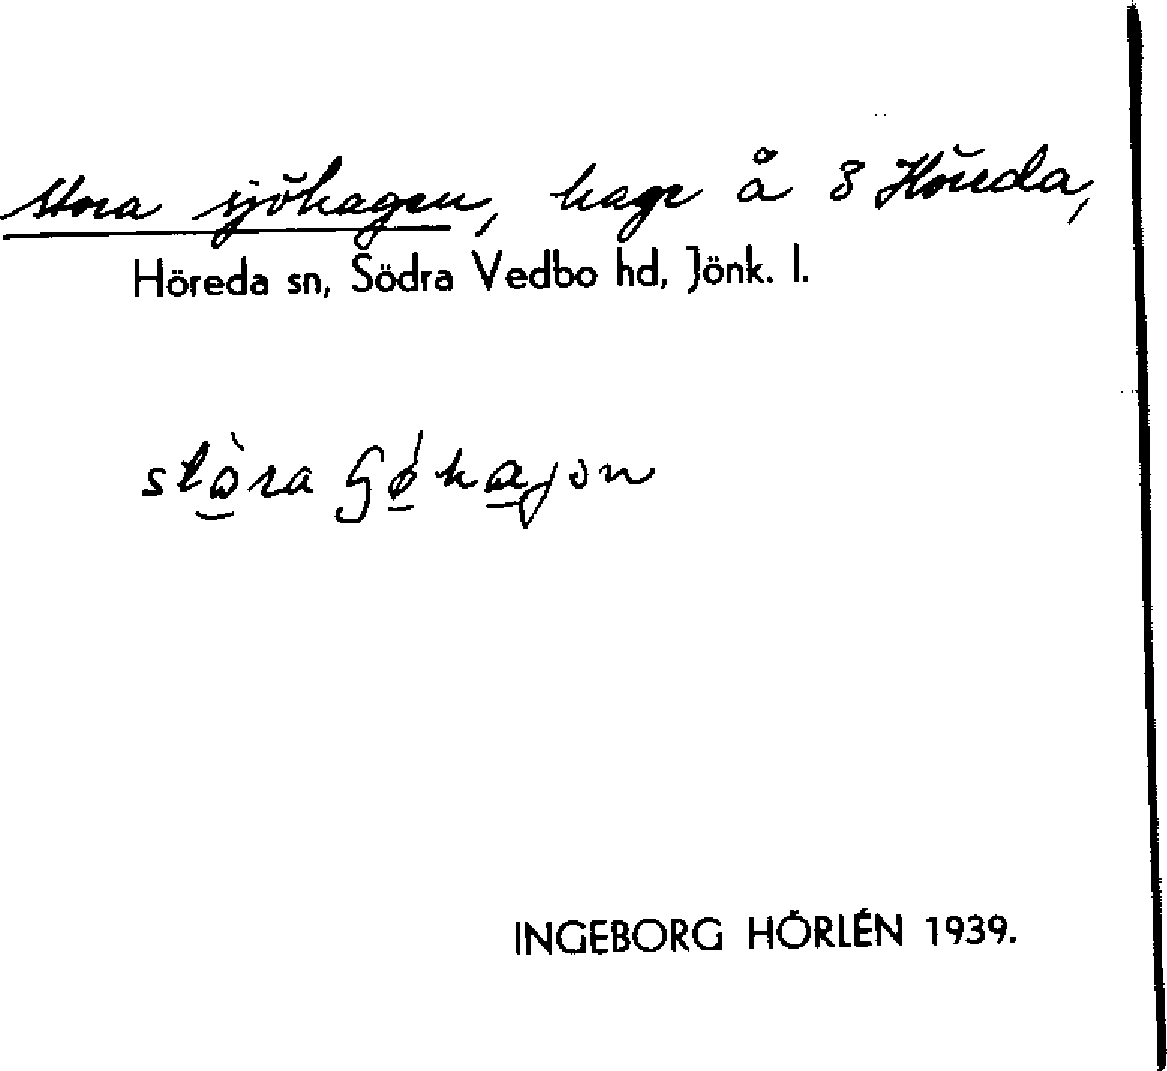 Stora sjöhagen, hage å 8 Höreda,
Höreda sn, Södra Vedbo hd, Jönk. l.
INGEBORG HÖRLÉN 1939.